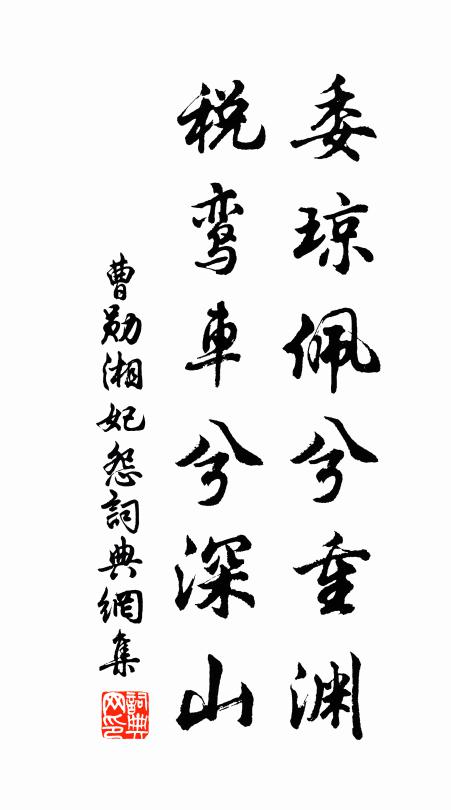 委琼佩兮重渊
税鸾車兮深山
曹勋湘妃怨詞典網集
詞典網印